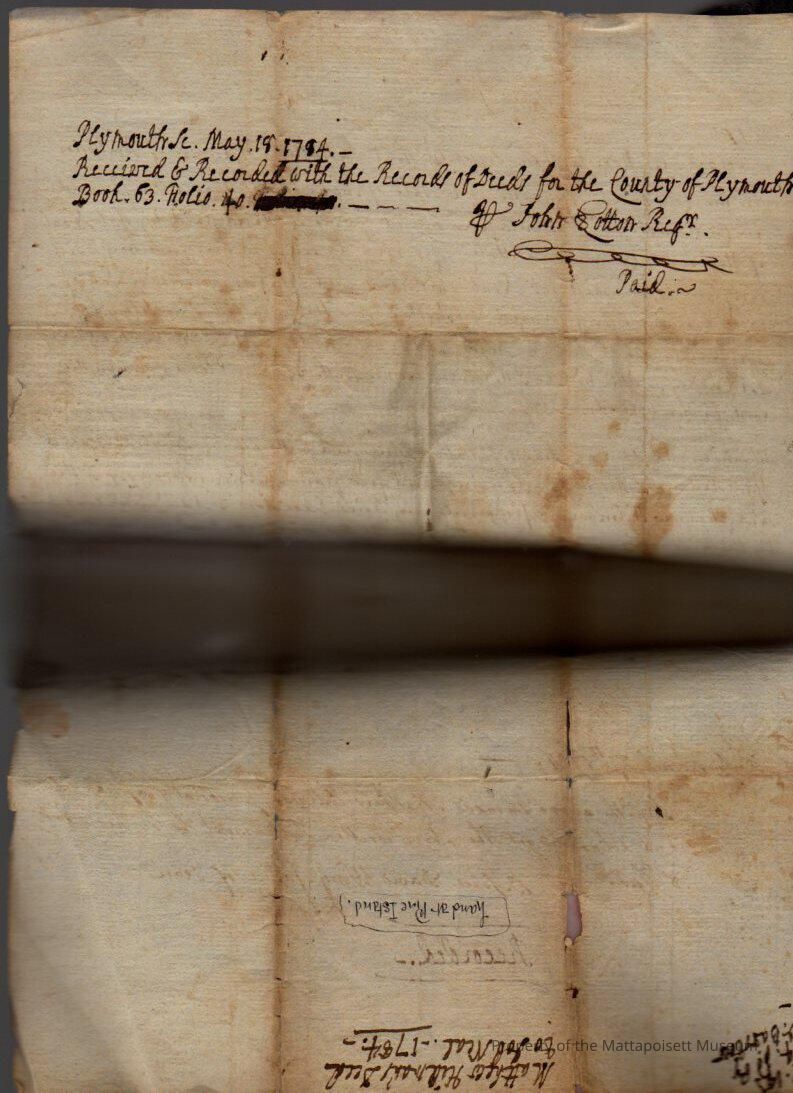 Plymouth Sc. May. 18. 1784.—
Received & Recorded with the Records of Deeds for the County of Plymouth
Book. 63. Folio. 40. — — —
John Cotton Regr.
Paid.
Land at Pine Island.
Recorded.—
Matthew Deed
to
1784.—
Property of the Mattapoisett Museum